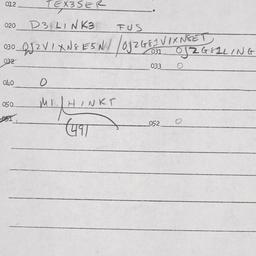 012 TEX3SER
020 D3ILINK3 FUS
030 OJ2VIXNSE5N / OJ2GE1VIXNSET,
032 031 OJ2GE1LING
033 O
040 O
050 MI/HINKT
051 (491 052 O